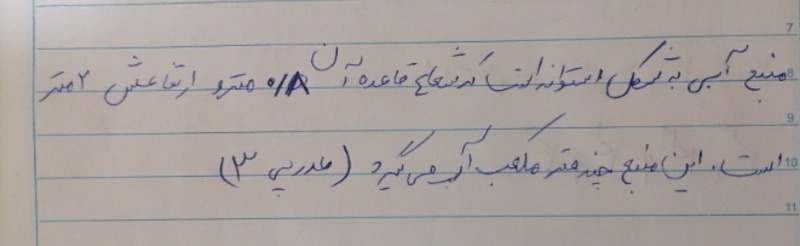 7
8
منبع آبی به شکل استوانه است که شعاع قاعده آن ۰/۸ متر و ارتفاعش ۲ متر
9
10
است. این منبع چند متر مکعب آب می گیرد (عدد پی ۳)
11